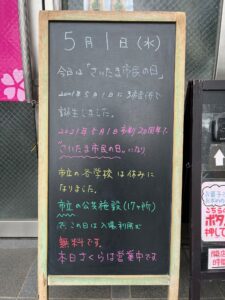 5月1日(水)
今日は「さいたま市民の日」
2001年5月1日に3市合併で
誕生しました。
2021年5月1日 20周年
"さいたま市民の日"になり
市立の各学校は休みに
なりました。
市立の公共施設(17ヶ所)
で、この日は入場利用が
無料です。
本日さくらは営業中です
こちらの
ボタン
押して